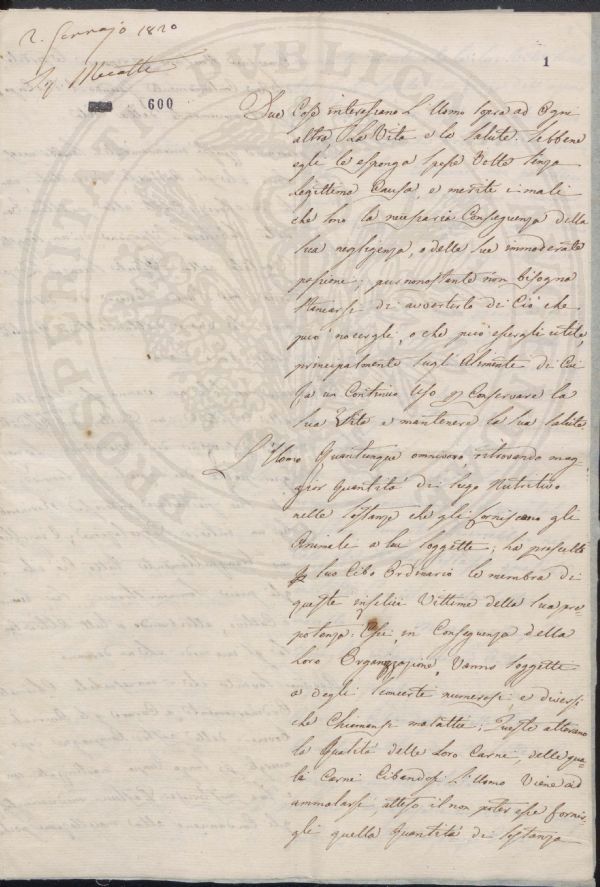 2. Gennajo 1820
1
600
Due Cose interessano L'Uomo sopra ad Ogni
altra, La Vita e la Salute. Sebbene
egli le esponga spesse Volte senza
legittima Causa e meriti i mali
che sono la necessaria Conseguenza della
sua negligenza, o della sua immoderata
passione; pur nonostante non bisogna
stancarsi di avvertirlo di Ciò che
può nocergli, o che può essergli utile,
principalmente sugl'Alimenti di Cui
fa un Continuo Uso p Conservare la
sua Vita e mantenere la sua Salute
L'Uomo Quantunque omnivoro, ritrovando mag=
gior Quantità di sugo Nutritivo
nelle sostanze che gli forniscano gli
Animali a lui soggetti; ha prescelto
p suo Cibo Ordinario le membra di
queste infelici Vittime della sua pre=
potenza. Essi, in Conseguenza della
Loro Organizzazione, Vanno soggetti
a degli sconcerti numerosi, e diversi
che Chiamansi malattie; Queste alterano
la Qualità delle Loro Carni, delle qua=
li Carni Cibandosi L'Uomo Viene ad
ammalarsi, atteso il non poter esse fornir=
gli quella Quantità di sostanza
PROSPERITATI PUBLIC